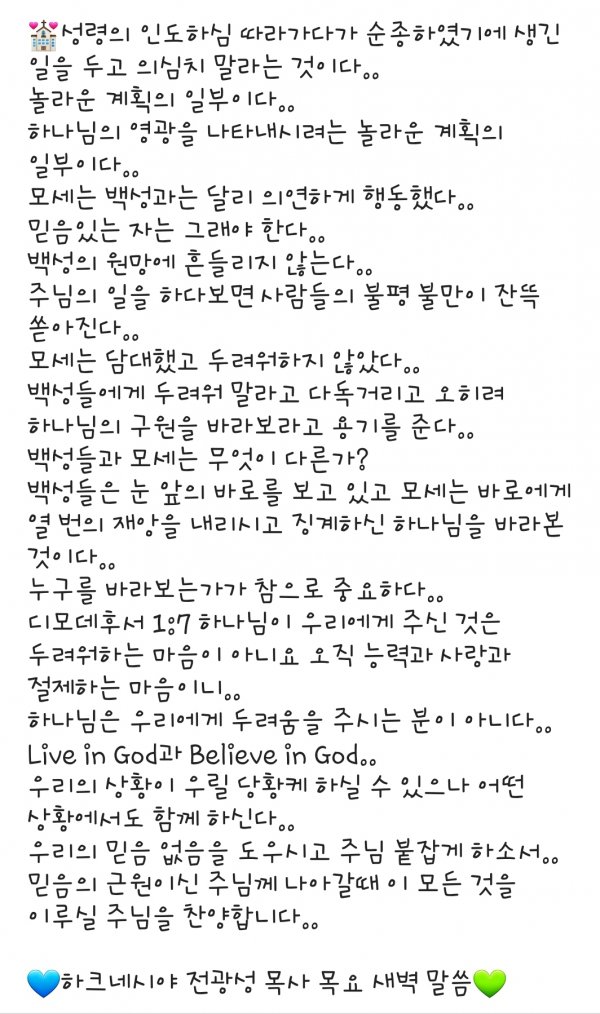 💒성령의 인도하심 따라가다가 순종하였기에 생긴
일을 두고 의심치 말라는 것이다。。
놀라운 계획의 일부이다。。
하나님의 영광을 나타내시려는 놀라운 계획의
일부이다。。
모세는 백성과는 달리 의연하게 행동했다。。
믿음있는 자는 그래야 한다。。
백성의 원망에 흔들리지 않는다。。
주님의 일을 하다보면 사람들의 불평 불만이 잔뜩
쏟아진다。。
모세는 담대했고 두려워하지 않았다。。
백성들에게 두려워 말라고 다독거리고 오히려
하나님의 구원을 바라보라고 용기를 준다。。
백성들과 모세는 무엇이 다른가?
백성들은 눈 앞의 바로를 보고 있고 모세는 바로에게
열 번의 재앙을 내리시고 징계하신 하나님을 바라본
것이다。。
누구를 바라보는가가 참으로 중요하다。。
디모데후서 1:7 하나님이 우리에게 주신 것은
두려워하는 마음이 아니요 오직 능력과 사랑과
절제하는 마음이니。。
하나님은 우리에게 두려움을 주시는 분이 아니다。。
Live in God과 Believe in God。。
우리의 상황이 우릴 당황케 하실 수 있으나 어떤
상황에서도 함께 하신다。。
우리의 믿음 없음을 도우시고 주님 붙잡게 하소서。。
믿음의 근원이신 주님께 나아갈때 이 모든 것을
이루실 주님을 찬양합니다。。
💙하크네시야 전광성 목사 목요 새벽 말씀💚